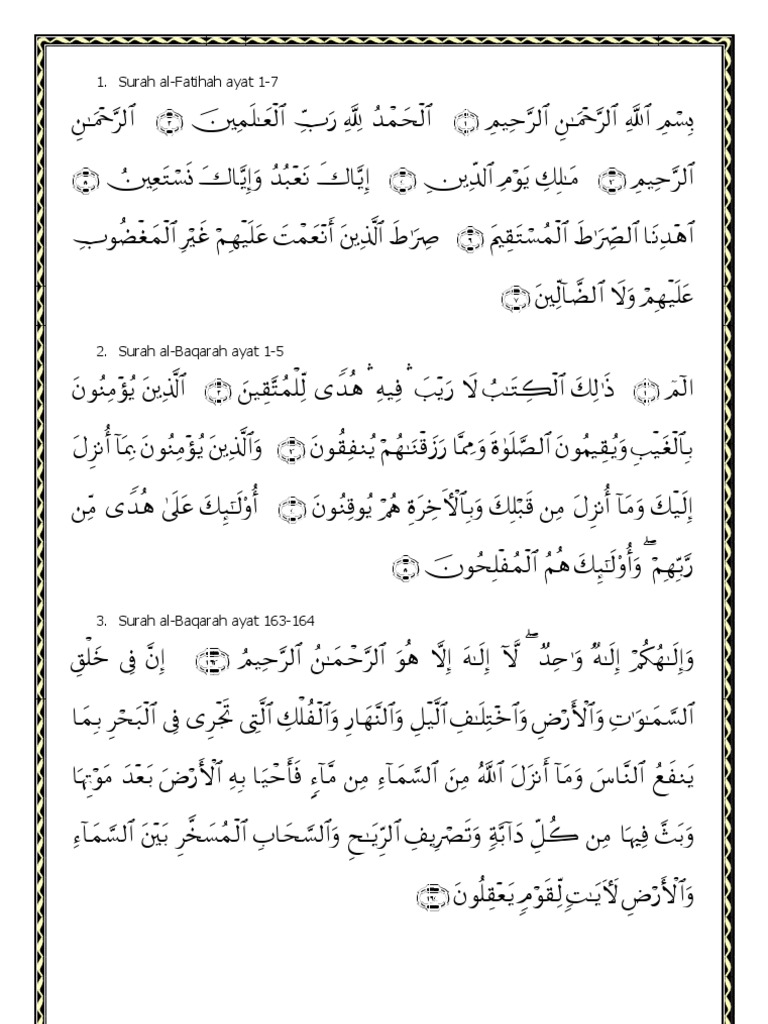 1. Surah al-Fatihah ayat 1-7
بِسْمِ ٱللَّهِ ٱلرَّحْمَـٰنِ ٱلرَّحِيمِ ﴿١﴾ ٱلْحَمْدُ لِلَّهِ رَبِّ ٱلْعَـٰلَمِينَ ﴿٢﴾ ٱلرَّحْمَـٰنِ
ٱلرَّحِيمِ ﴿٣﴾ مَـٰلِكِ يَوْمِ ٱلدِّينِ ﴿٤﴾ إِيَّاكَ نَعْبُدُ وَإِيَّاكَ نَسْتَعِينُ ﴿٥﴾
ٱهْدِنَا ٱلصِّرَٰطَ ٱلْمُسْتَقِيمَ ﴿٦﴾ صِرَٰطَ ٱلَّذِينَ أَنْعَمْتَ عَلَيْهِمْ غَيْرِ ٱلْمَغْضُوبِ
عَلَيْهِمْ وَلَا ٱلضَّآلِّينَ ﴿٧﴾
2. Surah al-Baqarah ayat 1-5
الٓمٓ ﴿١﴾ ذَٰلِكَ ٱلْكِتَـٰبُ لَا رَيْبَ ۛ فِيهِ ۛ هُدًى لِّلْمُتَّقِينَ ﴿٢﴾ ٱلَّذِينَ يُؤْمِنُونَ
بِٱلْغَيْبِ وَيُقِيمُونَ ٱلصَّلَوٰةَ وَمِمَّا رَزَقْنَـٰهُمْ يُنفِقُونَ ﴿٣﴾ وَٱلَّذِينَ يُؤْمِنُونَ بِمَآ أُنزِلَ
إِلَيْكَ وَمَآ أُنزِلَ مِن قَبْلِكَ وَبِٱلْـَٔاخِرَةِ هُمْ يُوقِنُونَ ﴿٤﴾ أُو۟لَـٰٓئِكَ عَلَىٰ هُدًى مِّن
رَّبِّهِمْ ۖ وَأُو۟لَـٰٓئِكَ هُمُ ٱلْمُفْلِحُونَ ﴿٥﴾
3. Surah al-Baqarah ayat 163-164
وَإِلَـٰهُكُمْ إِلَـٰهٌ وَٰحِدٌ ۖ لَّآ إِلَـٰهَ إِلَّا هُوَ ٱلرَّحْمَـٰنُ ٱلرَّحِيمُ ﴿١٦٣﴾ إِنَّ فِى خَلْقِ
ٱلسَّمَـٰوَٰتِ وَٱلْأَرْضِ وَٱخْتِلَـٰفِ ٱلَّيْلِ وَٱلنَّهَارِ وَٱلْفُلْكِ ٱلَّتِى تَجْرِى فِى ٱلْبَحْرِ بِمَا
يَنفَعُ ٱلنَّاسَ وَمَآ أَنزَلَ ٱللَّهُ مِنَ ٱلسَّمَآءِ مِن مَّآءٍ فَأَحْيَا بِهِ ٱلْأَرْضَ بَعْدَ مَوْتِهَا
وَبَثَّ فِيهَا مِن كُلِّ دَآبَّةٍ وَتَصْرِيفِ ٱلرِّيَـٰحِ وَٱلسَّحَابِ ٱلْمُسَخَّرِ بَيْنَ ٱلسَّمَآءِ
وَٱلْأَرْضِ لَـَٔايَـٰتٍ لِّقَوْمٍ يَعْقِلُونَ ﴿١٦٤﴾